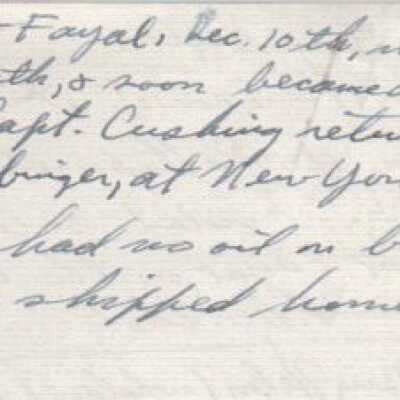 Fayal, Dec. 10th,
th, & soon became
Capt. Cushing retu
binger, at New Yor
had no oil on b
shipped home